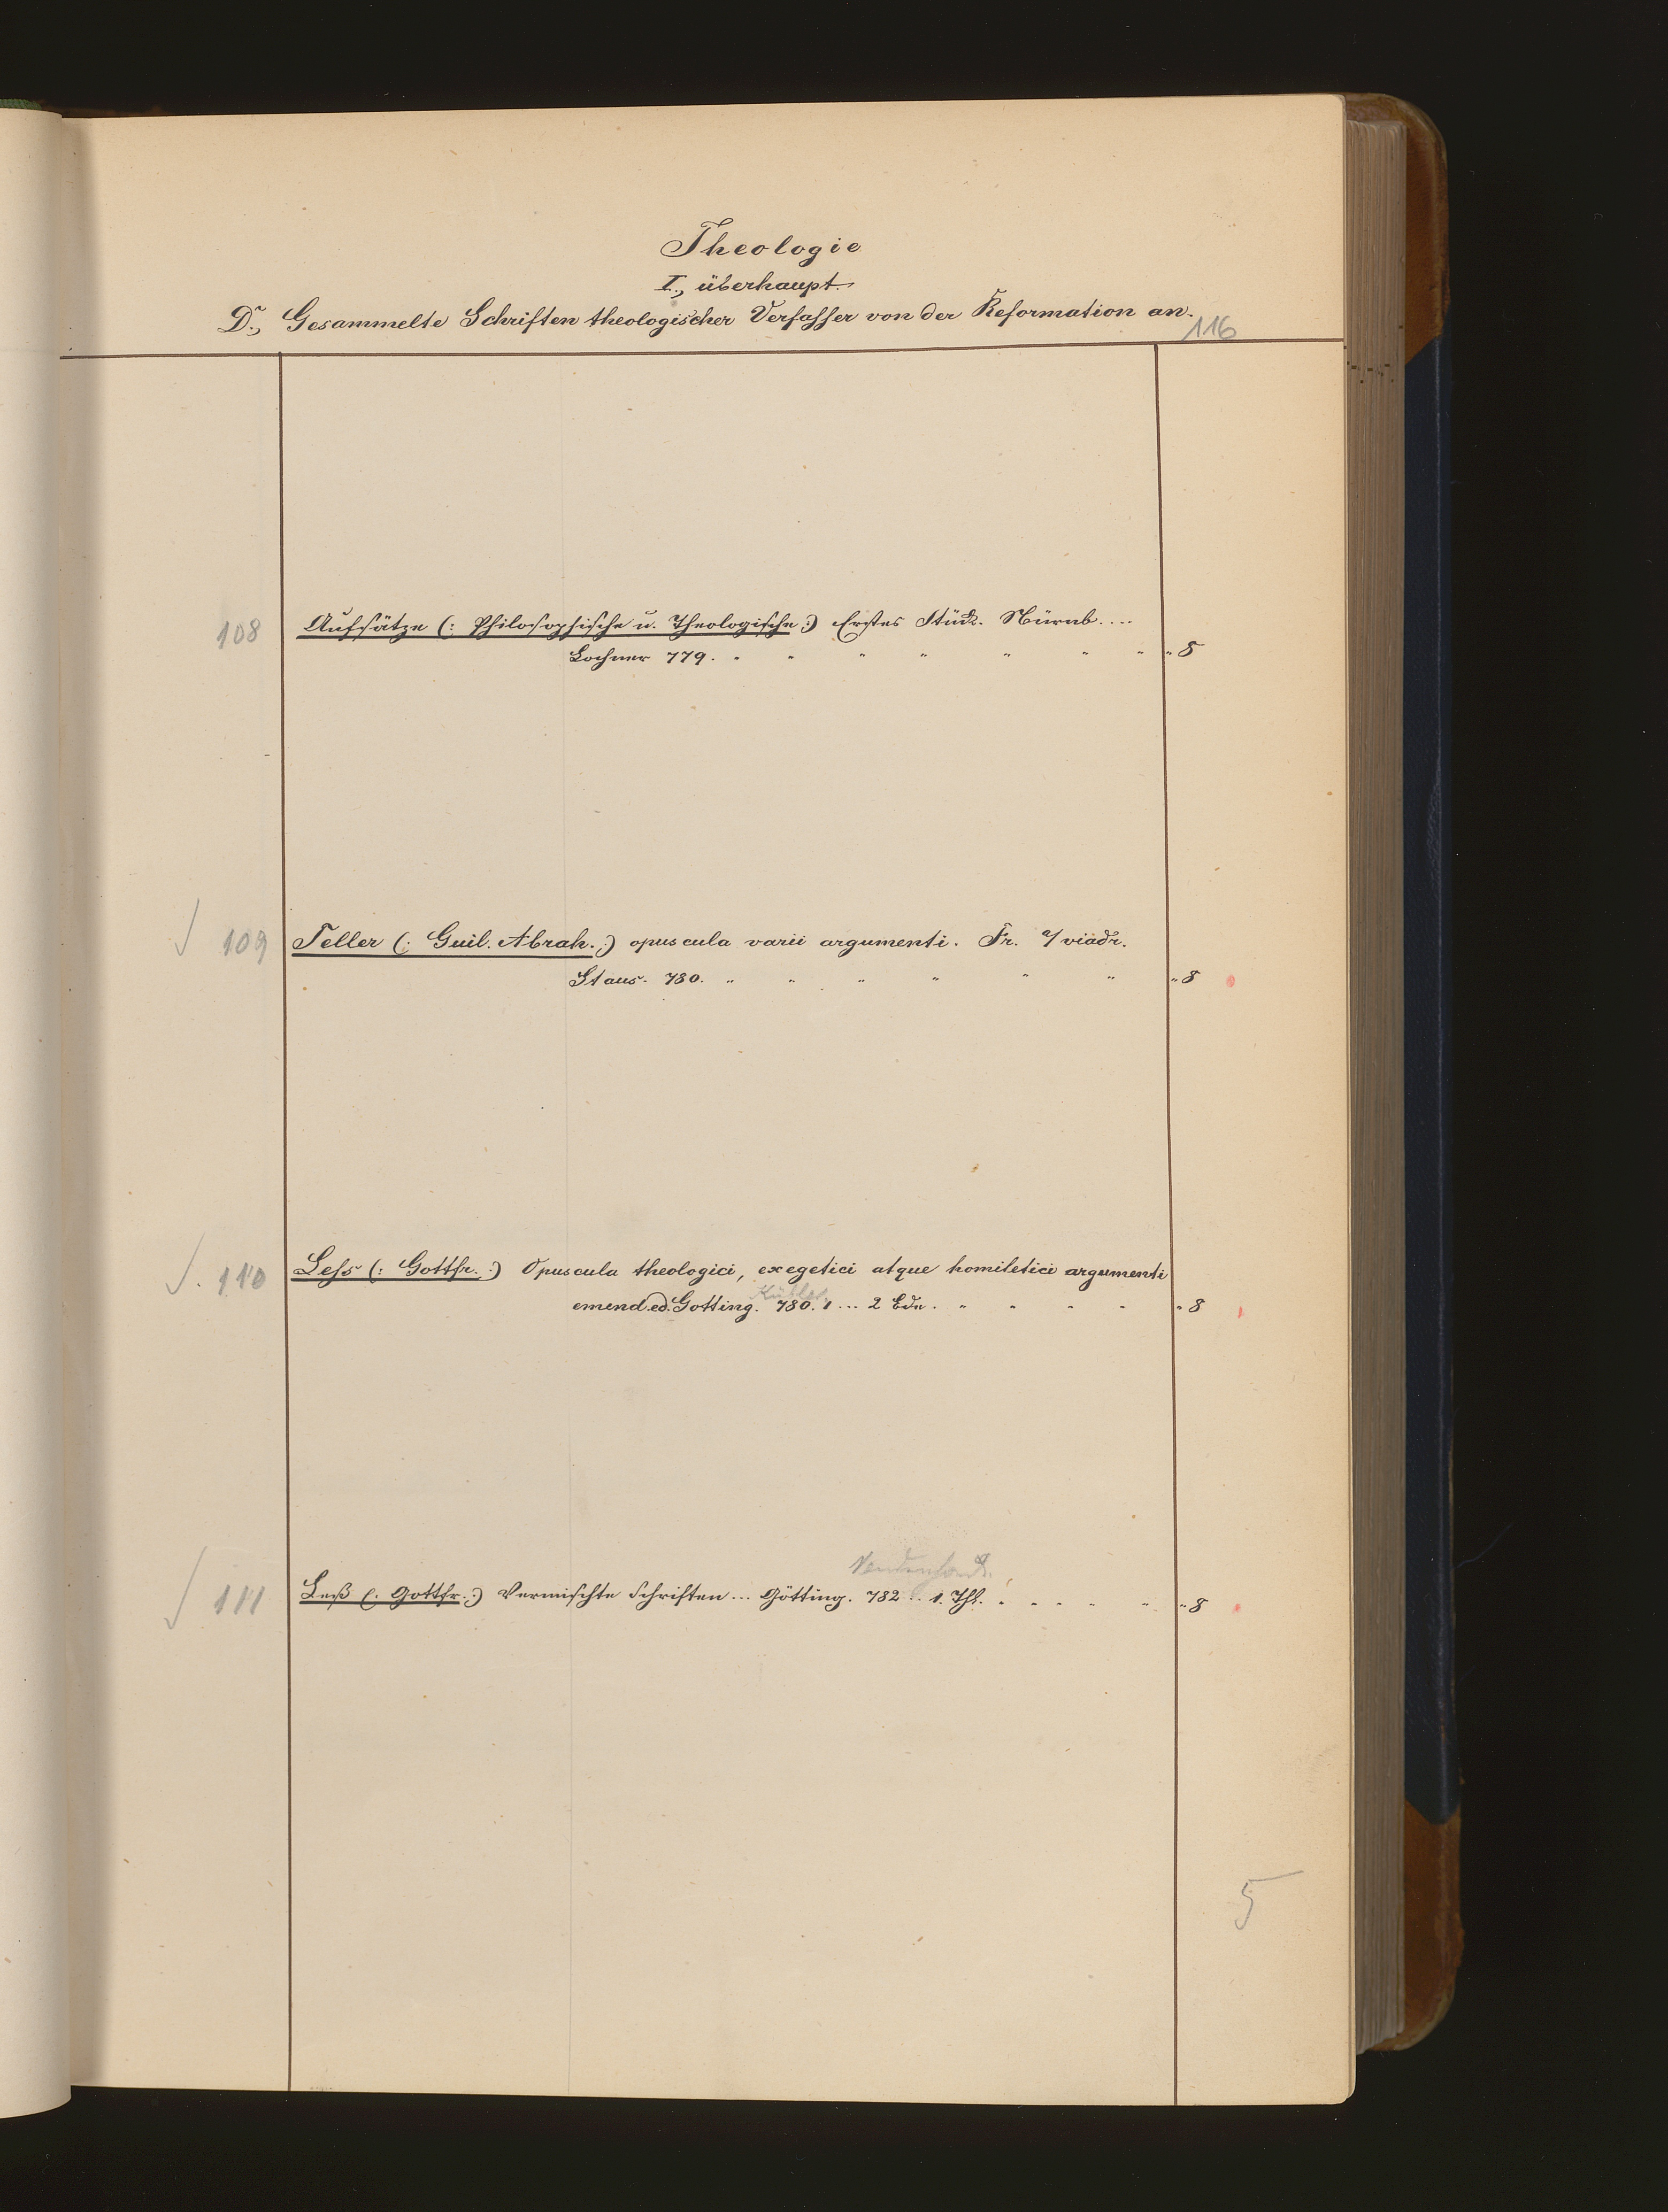 Theologie
I., überhaupt.
D., Gesammelte Schriften theologischer Verfasser von der Reformation an.
116
108 Aufsätze (: Philosophische u. Theologische :) Erstes Stück. Nürnb....
Lochner 779. " " " " " " " " 8
109 Teller (: Guil. Abrah. :) opuscula varii argumenti. Fr. a/viadr.
Staus. 780. " " " " " " " 8
110 Less (: Gottfr. :) Opuscula theologici, exegetici atque homiletici argumenti
Kübler
emend. ed. Gotting. 780. 1 ... 2 Bde. " " " " " 8
Vandenhoeck.
111 Leß (: Gottfr. :) Vermischte Schriften ... Götting. 782 .. 1. Thl. " " " " " " 8
5